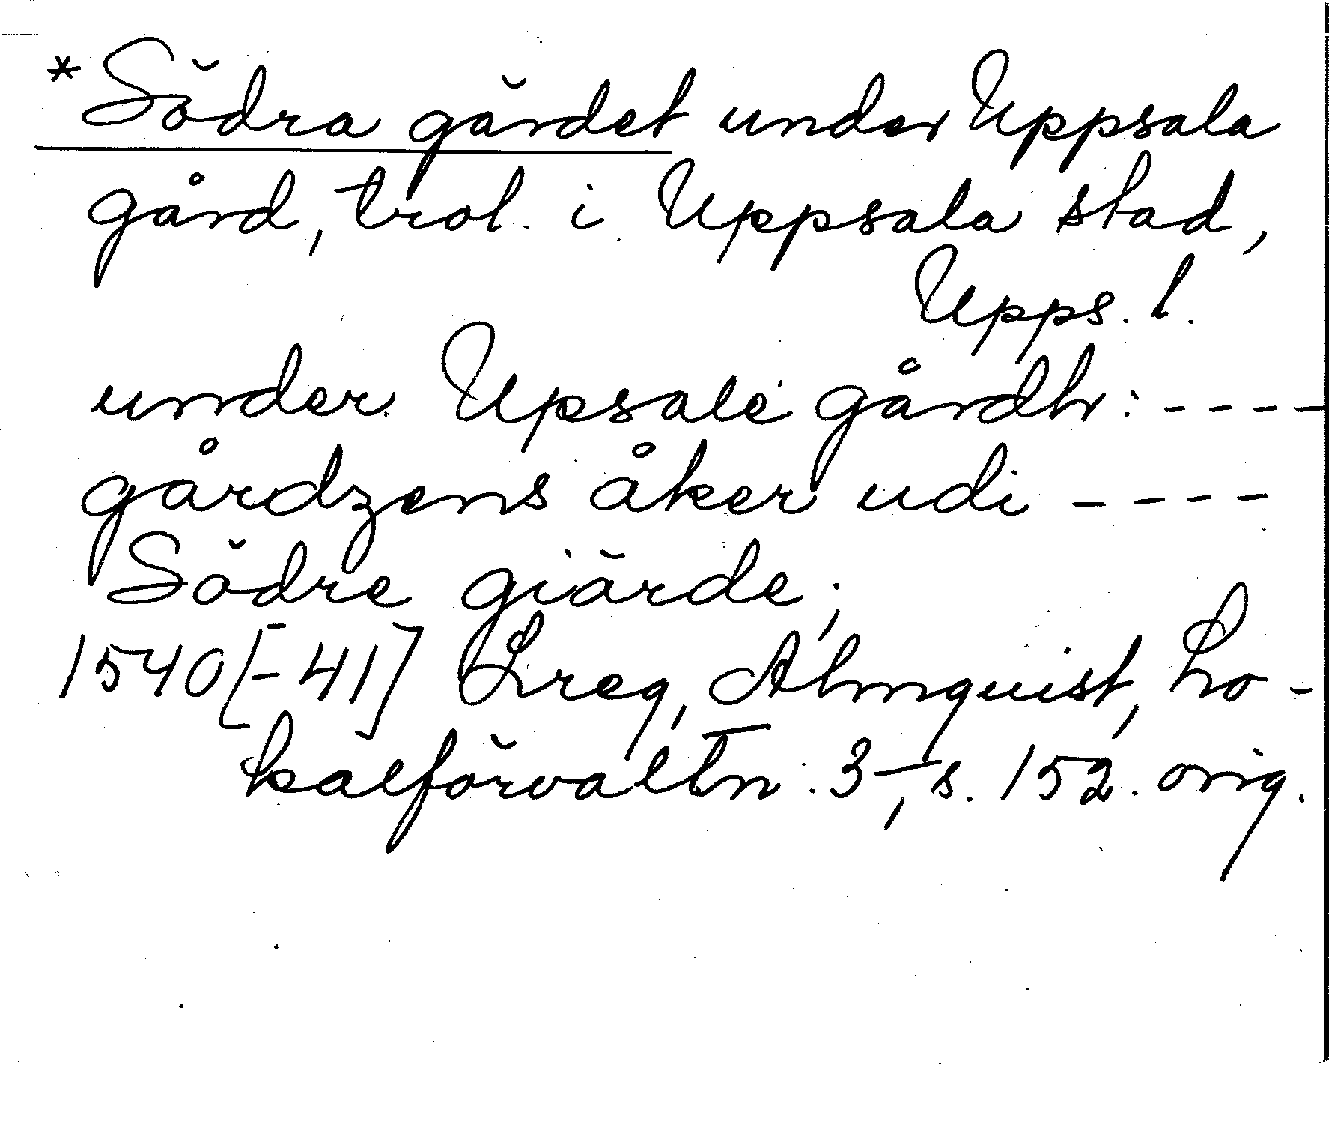 *Södra gärdet under Uppsala
gård, trol. i Uppsala stad,
Upps. l.
under Upsale gårdh: ----
gårdzens åker udi ----
Södre giärde;
1540[-41] Lreg, Almquist, Lo-
kalförvaltn. 3, s. 152. orig.